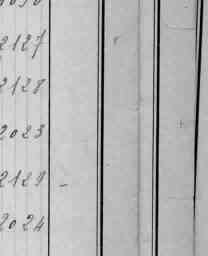 2127
2128
2023
2129
2024